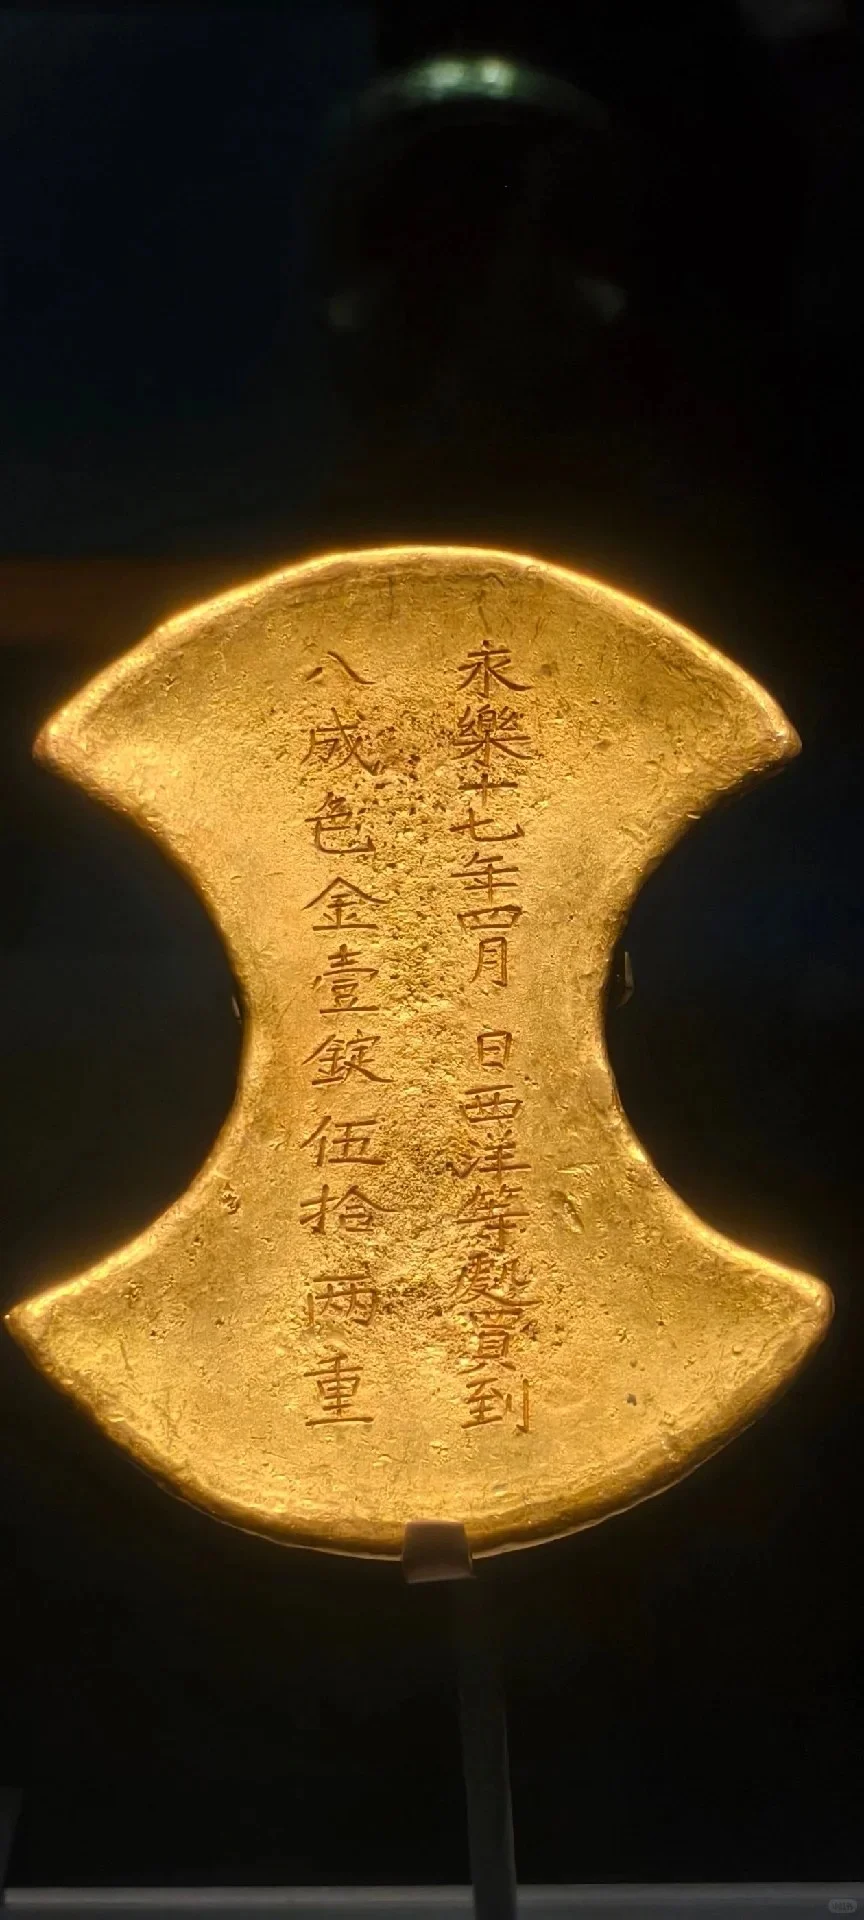 永樂十七年四月 日西洋等處買到
八成色金壹錠伍拾兩重